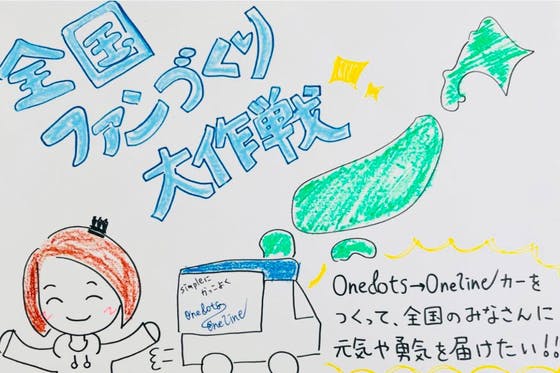 全国
ファンづくり
大作戦
simpleに
かっこよく
Onedots
Oneline
Onedots→Onelineカーを
つくって、全国のみなさんに
元気や勇気を届けたい!!